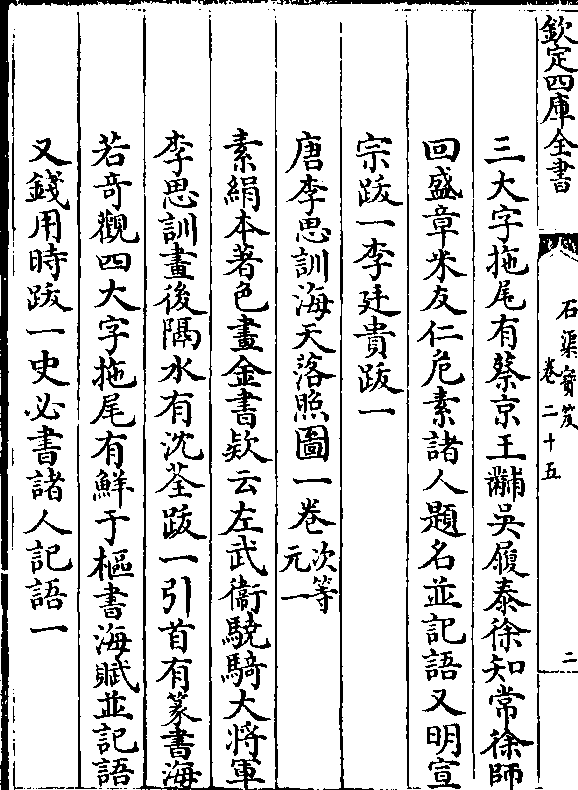 欽定四庫全書
石渠寶笈
卷二十五
二
三大字拖尾有蔡京王黼吳履泰徐知常徐師
回盛章米友仁危素諸人題名並記語又明宣
宗跋一李廷貴跋一
唐李思訓海天落照圖一卷 次等元一
素絹本著色畫金書欵云左武衞驍騎大將軍
李思訓畫後隔水有沈荃跋一引首有篆書海
若奇觀四大字拖尾有鮮于樞書海賦並記語
又錢用時跋一史必書諸人記語一